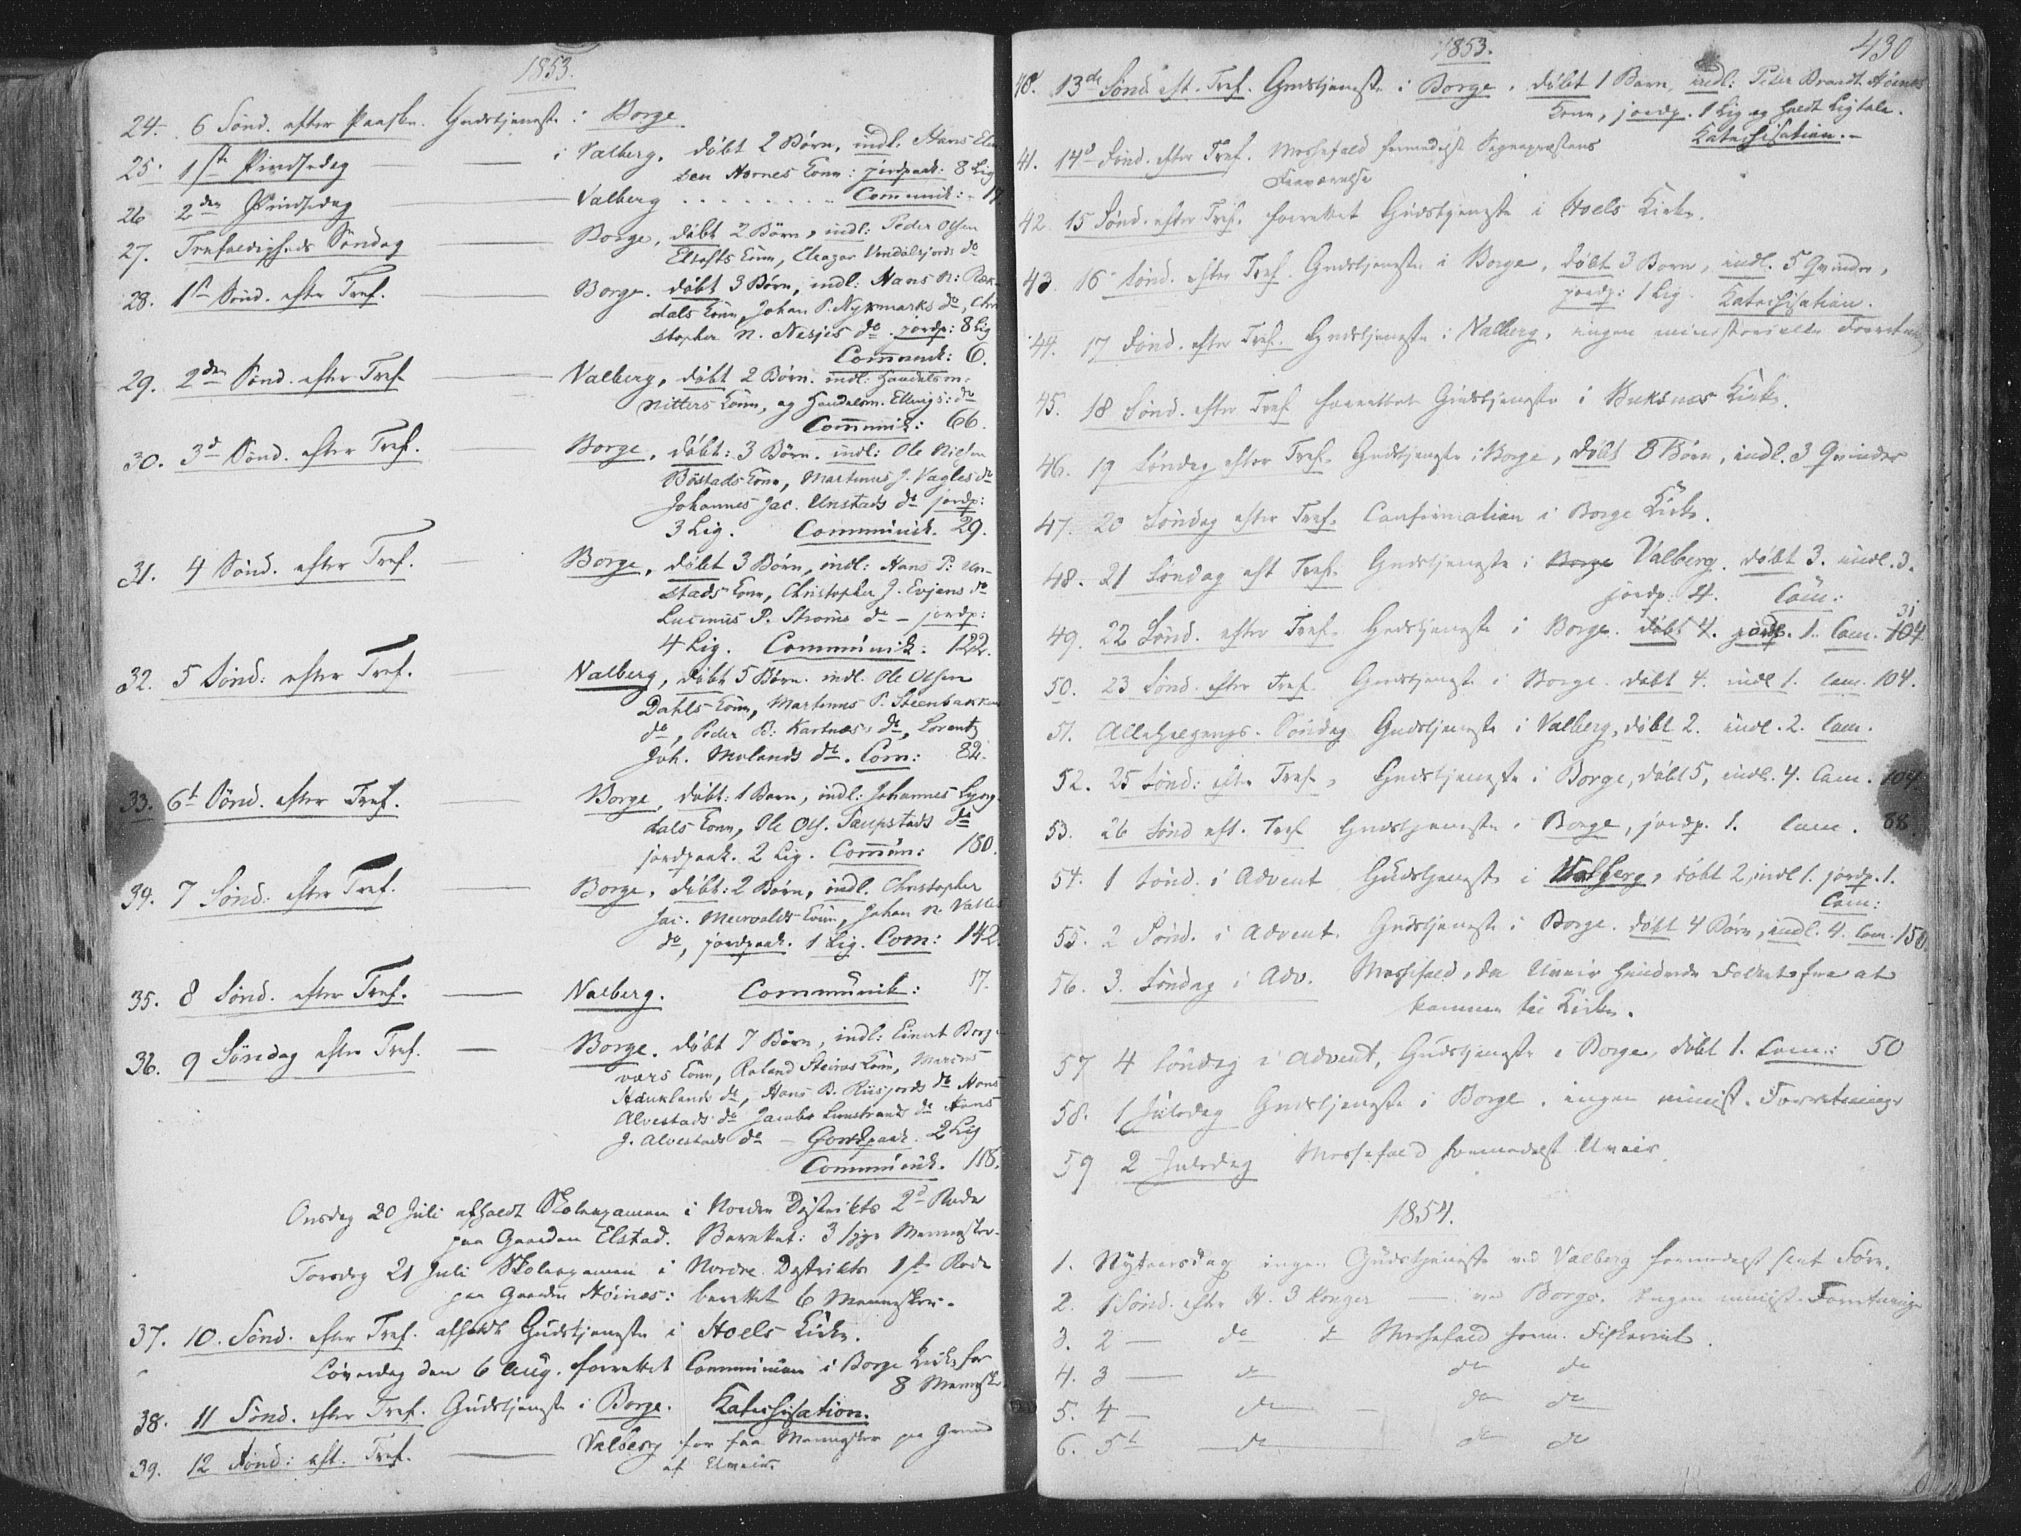 1853.
24. 6 Sønd. efter Paaske. Gudstjeneste i Borge
25. 1ste Pindsedag — i Valberg, døbt 2 Børn, indl. Hans
sen Hornes Kone: jordpaak: 8 Lig
26 2den Pindsedag — Valberg . . . . . . . . . Communik: 17
27. Trefoldigheds Søndag — Borge, døbt 2 Børn, indl: Peder Olsen
Eltofts Kone, Eleazar Vendalsjords do
28. 1ste Sønd. efter Tref. — Borge. døbt 3 Børn, indl: Hans N:
dals Kone, Johan P. Nykmarks do, Chri
stopher N. Nesjes do. jordp: 8 Lig
Communik: 6.
29. 2den Sønd. efter Tref. — Valberg, døbt 2 Børn. indl: Handelsm.
Nitters Kone, og Handelsm. Ellings: do
Communik: 66.
30. 3d Sønd. efter Tref. — Borge, døbt: 3 Børn. indl: Ole Nielsen
Bøstads Kone, Martinus J. Vagles do
Johannes Jac. Unstads do jordp:
3 Lig. Communik. 29.
31. 4 Sønd. efter Tref. — Borge, døbt 3 Børn, indl: Hans P: Un-
stads Kone, Christopher J. Evjens do
Lucinus P. Strøms do – jordp:
4 Lig. Communik: 122.
32. 5 Sønd: efter Tref. — Valberg, døbt 5 Børn. indl. Ole Olsen
Dahls Kone, Martinus P. Steenbakken
do, Peder B. Kartnæs: do, Lorentz
Joh. Molands do. Com: 82.
33. 6t Sønd. efter Tref. — Borge, døbt: 1 Barn, indl: Johannes Lyng
dals Kone, Ole Ols. Saupstads do
jordpaak. 2 Lig. Commun: 180.
34. 7 Sønd: efter Tref. — Borge, døbt: 2 Børn, indl. Christopher
Jac. Meervolds Kone, Johan N. Valle
do, jordpaak. 1 Lig. Com: 142.
35. 8 Sønd. efter Tref. — Valberg. Communik: 17.
36. 9 Søndag efter Tref. — Borge. døbt 7 Børn, indl: Einert Borg-
vars Kone, Roland Steiros Kone, Marius
Hauklands do, Hans B. Riisjords do Hans
Alvestads do Jacobs Limstrands do Hans
J. Alvestads do – Jordpaak. 2 Lig
Communik. 118.
Onsdag 20 Juli afholdt Skoleexamen i Nordre Distrikts 2d Rode
paa Gaarden Elstad. Berettet: 3 syge Mennesker.
Torsdag 21 Juli Skoleexamen i Nordre Distrikts 1ste Rode
paa Gaarden Høinæs: berettet 6 Mennesker.
37. 10. Sønd. efter Tref. afholdt Gudstjeneste i Hoels Kirke.
Løverdag den 6 Aug. forrettet Communion i Borge Kirke for
8 Mennesker
38. 11 Sønd. efter Tref. Gudstjeneste i Borge. Katechisation.
39. 12 Sønd: eft. Tref. — Valberg for faa Mennesker paa Grund
af Uveir.
1853.
430
40. 13de Sønd. eft. Tref. Gudstjeneste i Borge. døbt 1 Barn, indl: Peder Brandt Høinæs
Kone, jordp. 1 Lig og holdt Ligtale.
Katechisation.–
41. 14d Sønd. efter Tref. Messefald formedelst Sognepræstens
Fraværelse
42. 15 Sønd. efter Tref. forrettet Gudstjeneste i Hoels Kirke.
43. 16 Sønd. efter Tref. Gudstjeneste i Borge, døbt 3 Børn, indl. 5 Qvinder,
jordp: 1 Lig. Katechisation.
44. 17 Sønd. efter Tref. Gudstjeneste i Valberg, ingen ministerielle Forretn
45. 18 Sønd. efter Tref forrettet Gudstjeneste i Buksnæs Kirke.
46. 19 Søndag efter Tref. Gudstjeneste i Borge, døbt 8 Børn, indl. 3 Qvinder
47. 20 Søndag efter Tref. Confirmation i Borge Kirke.
48. 21 Søndag eft Tref. Gudstjeneste i Borge Valberg. døbt 3. indl. 3.
jordp. 4. Com: 31
49. 22 Sønd. efter Tref. Gudstjeneste i Borge. døbt 4. jordp. 1. Com. 104
50. 23 Sønd. efter Tref. Gudstjeneste i Borge. døbt 4. indl 1. Com. 104.
51. Allehelgens-Søndag Gudstjeneste i Valberg, døbt 2. indl. 2. Com.
52. 25 Sønd: efter Tref. Gudstjeneste i Borge, døbt 5, indl. 4. Com. 104.
53. 26 Sønd eft. Tref Gudstjeneste i Borge, jordp. 1. Com. 88.
54. 1 Sønd. i Advent Gudstjeneste i Valberg, døbt 2, indl 1. jordp. 1.
Com:
55. 2 Sønd. i Advent. Gudstjeneste i Borge. døbt 4 Børn, indl. 4. Com. 150
56. 3. Søndag i Adv. Messefald, da Uveir hindrede Folket fra at
komme til Kirke.
57 4 Søndag i Advent, Gudstjeneste i Borge, døbt 1. Com: 50
58. 1 Juledag Gudstjeneste i Borge. ingen minist. Forretninge
59 2 Juledag Messefald formedelst Uveir
1854.
1. Nytaarsdag ingen Gudstjeneste ved Valberg formedelst slet Føre.
2. 1 Sønd. efter H. 3 Konger — ved Borge. Ingen minist. Forretninge
3. 2 — do do Messefald form. Fiskeriet.
4. 3 — do do do
5. 4 — do — do do
6. 5t — do do do